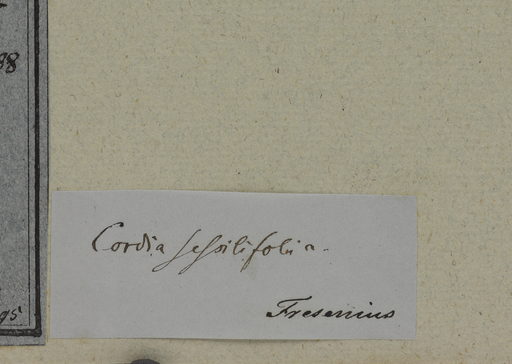 88
95
Cordia sessilifolia.
Fresenius